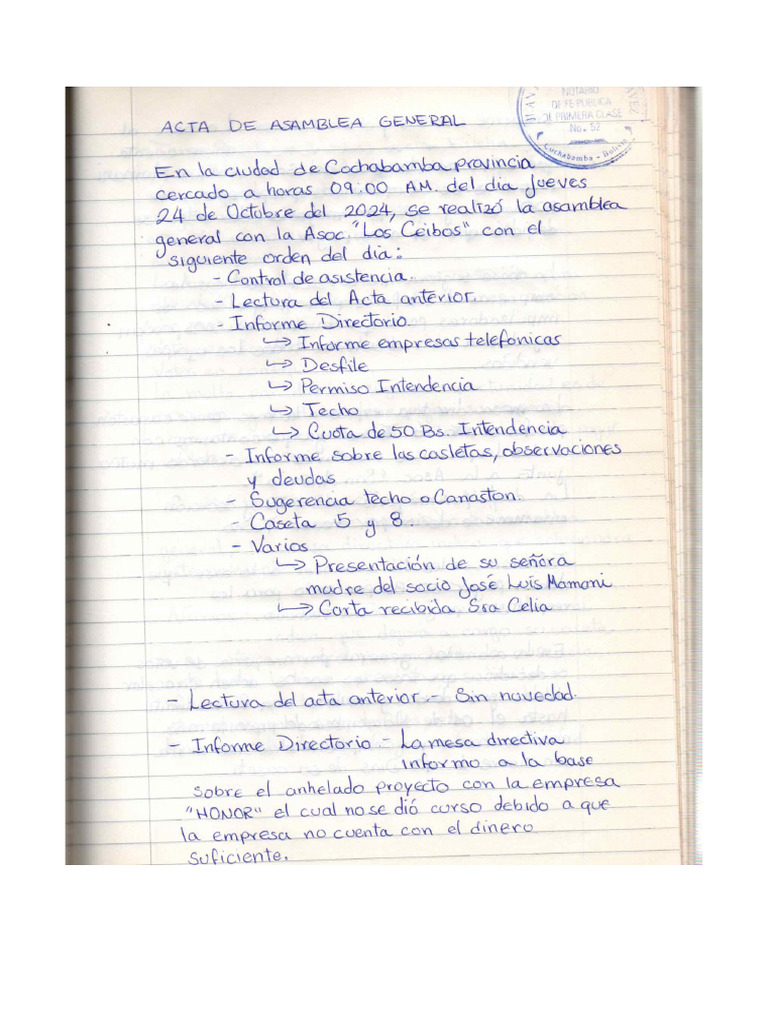 NOTARIO
DE FE PUBLICA
DE PRIMERA CLASE
No. 52
Cochabamba - Bolivia
ACTA DE ASAMBLEA GENERAL
En la ciudad de Cochabamba provincia
cercado a horas 09:00 AM. del dia Jueves
24 de Octubre del 2024, se realizó la asamblea
general con la Asoc. "Los Ceibos" con el
siguiente orden del dia:
- Control de asistencia.
- Lectura del Acta anterior.
- Informe Directorio.
↳ Informe empresas telefonicas
↳ Desfile
↳ Permiso Intendencia
↳ Techo
↳ Cuota de 50 Bs. Intendencia
- Informe sobre las casletas, observaciones
y deudas
- Sugerencia techo o Canaston.
- Caseta 5 y 8.
- Varios
↳ Presentación de su señora
madre del socio José Luis Mamani
↳ Carta recibida Sra Celia
- Lectura del acta anterior.- Sin novedad.
- Informe Directorio.- La mesa directiva
informo a la base
sobre el anhelado proyecto con la empresa
"HONOR" el cual no se dió curso debido a que
la empresa no cuenta con el dinero
suficiente.